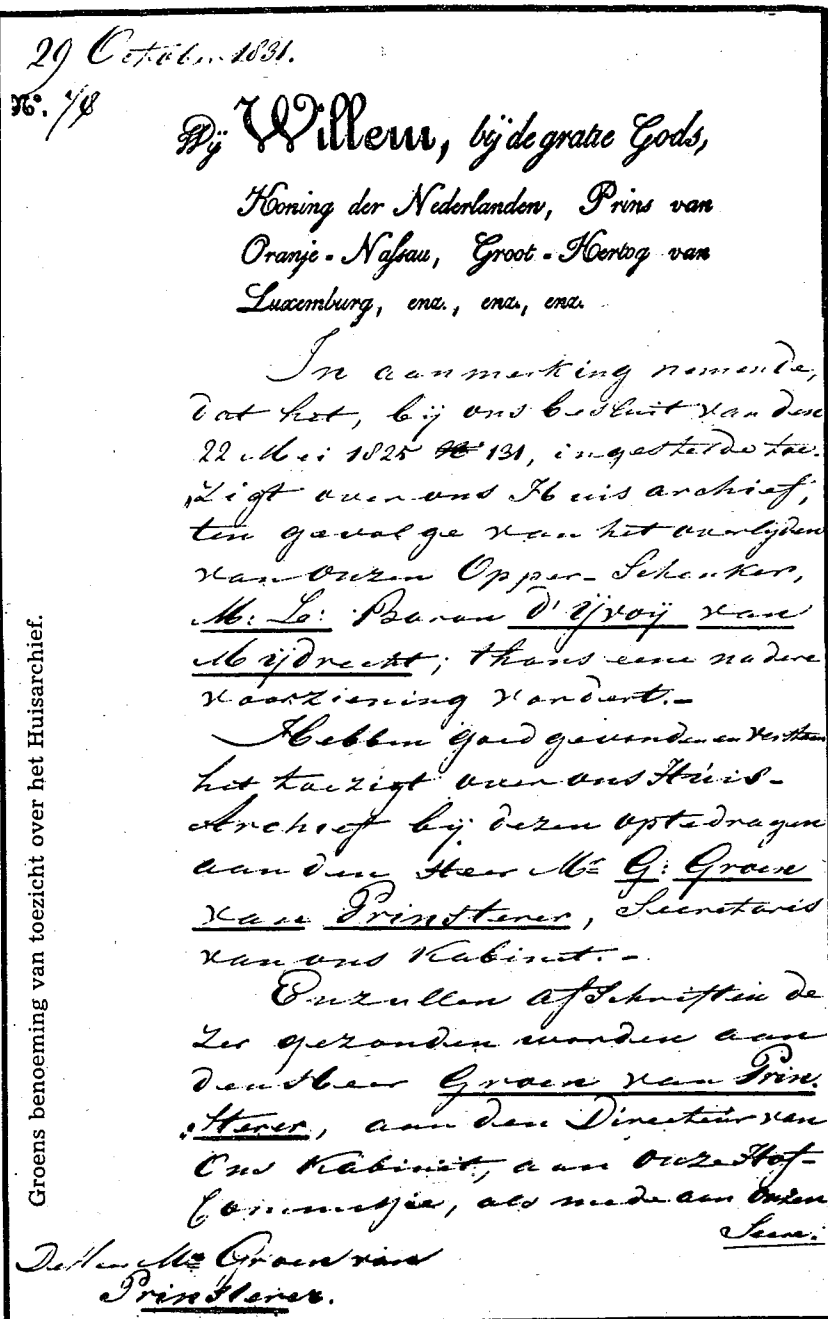 29 October 1831.
No. 78
Wij Willem, bij de gratie Gods,
Koning der Nederlanden, Prins van
Oranje-Nassau, Groot-Hertog van
Luxemburg, enz., enz., enz.
In aanmerking nemende,
dat het, bij ons besluit van den
22 Mei 1825 No 131, ingestelde toe-
zigt over ons Huisarchief,
ten gevolge van het overlijden
van onzen Opper-Schenker,
M: L: Baron d'Yvoij van
Mijdrecht; thans eene nadere
voorziening vordert.-
Hebben goedgevonden en verstaan
het toezigt over ons Huis-
Archief bij dezen optedragen
aan den Heer Mr G: Groen
van Prinsterer, Secretaris
van ons Kabinet.-
En zullen afschriften de-
zer gezonden worden aan
den Heer Groen van Prin-
sterer, aan den Directeur van
Ons Kabinet, aan onze Hof-
Commissie, als mede aan onzen
Secre:
De Heer Mr Groen van
Prinsterer.
Groens benoeming van toezicht over het Huisarchief.